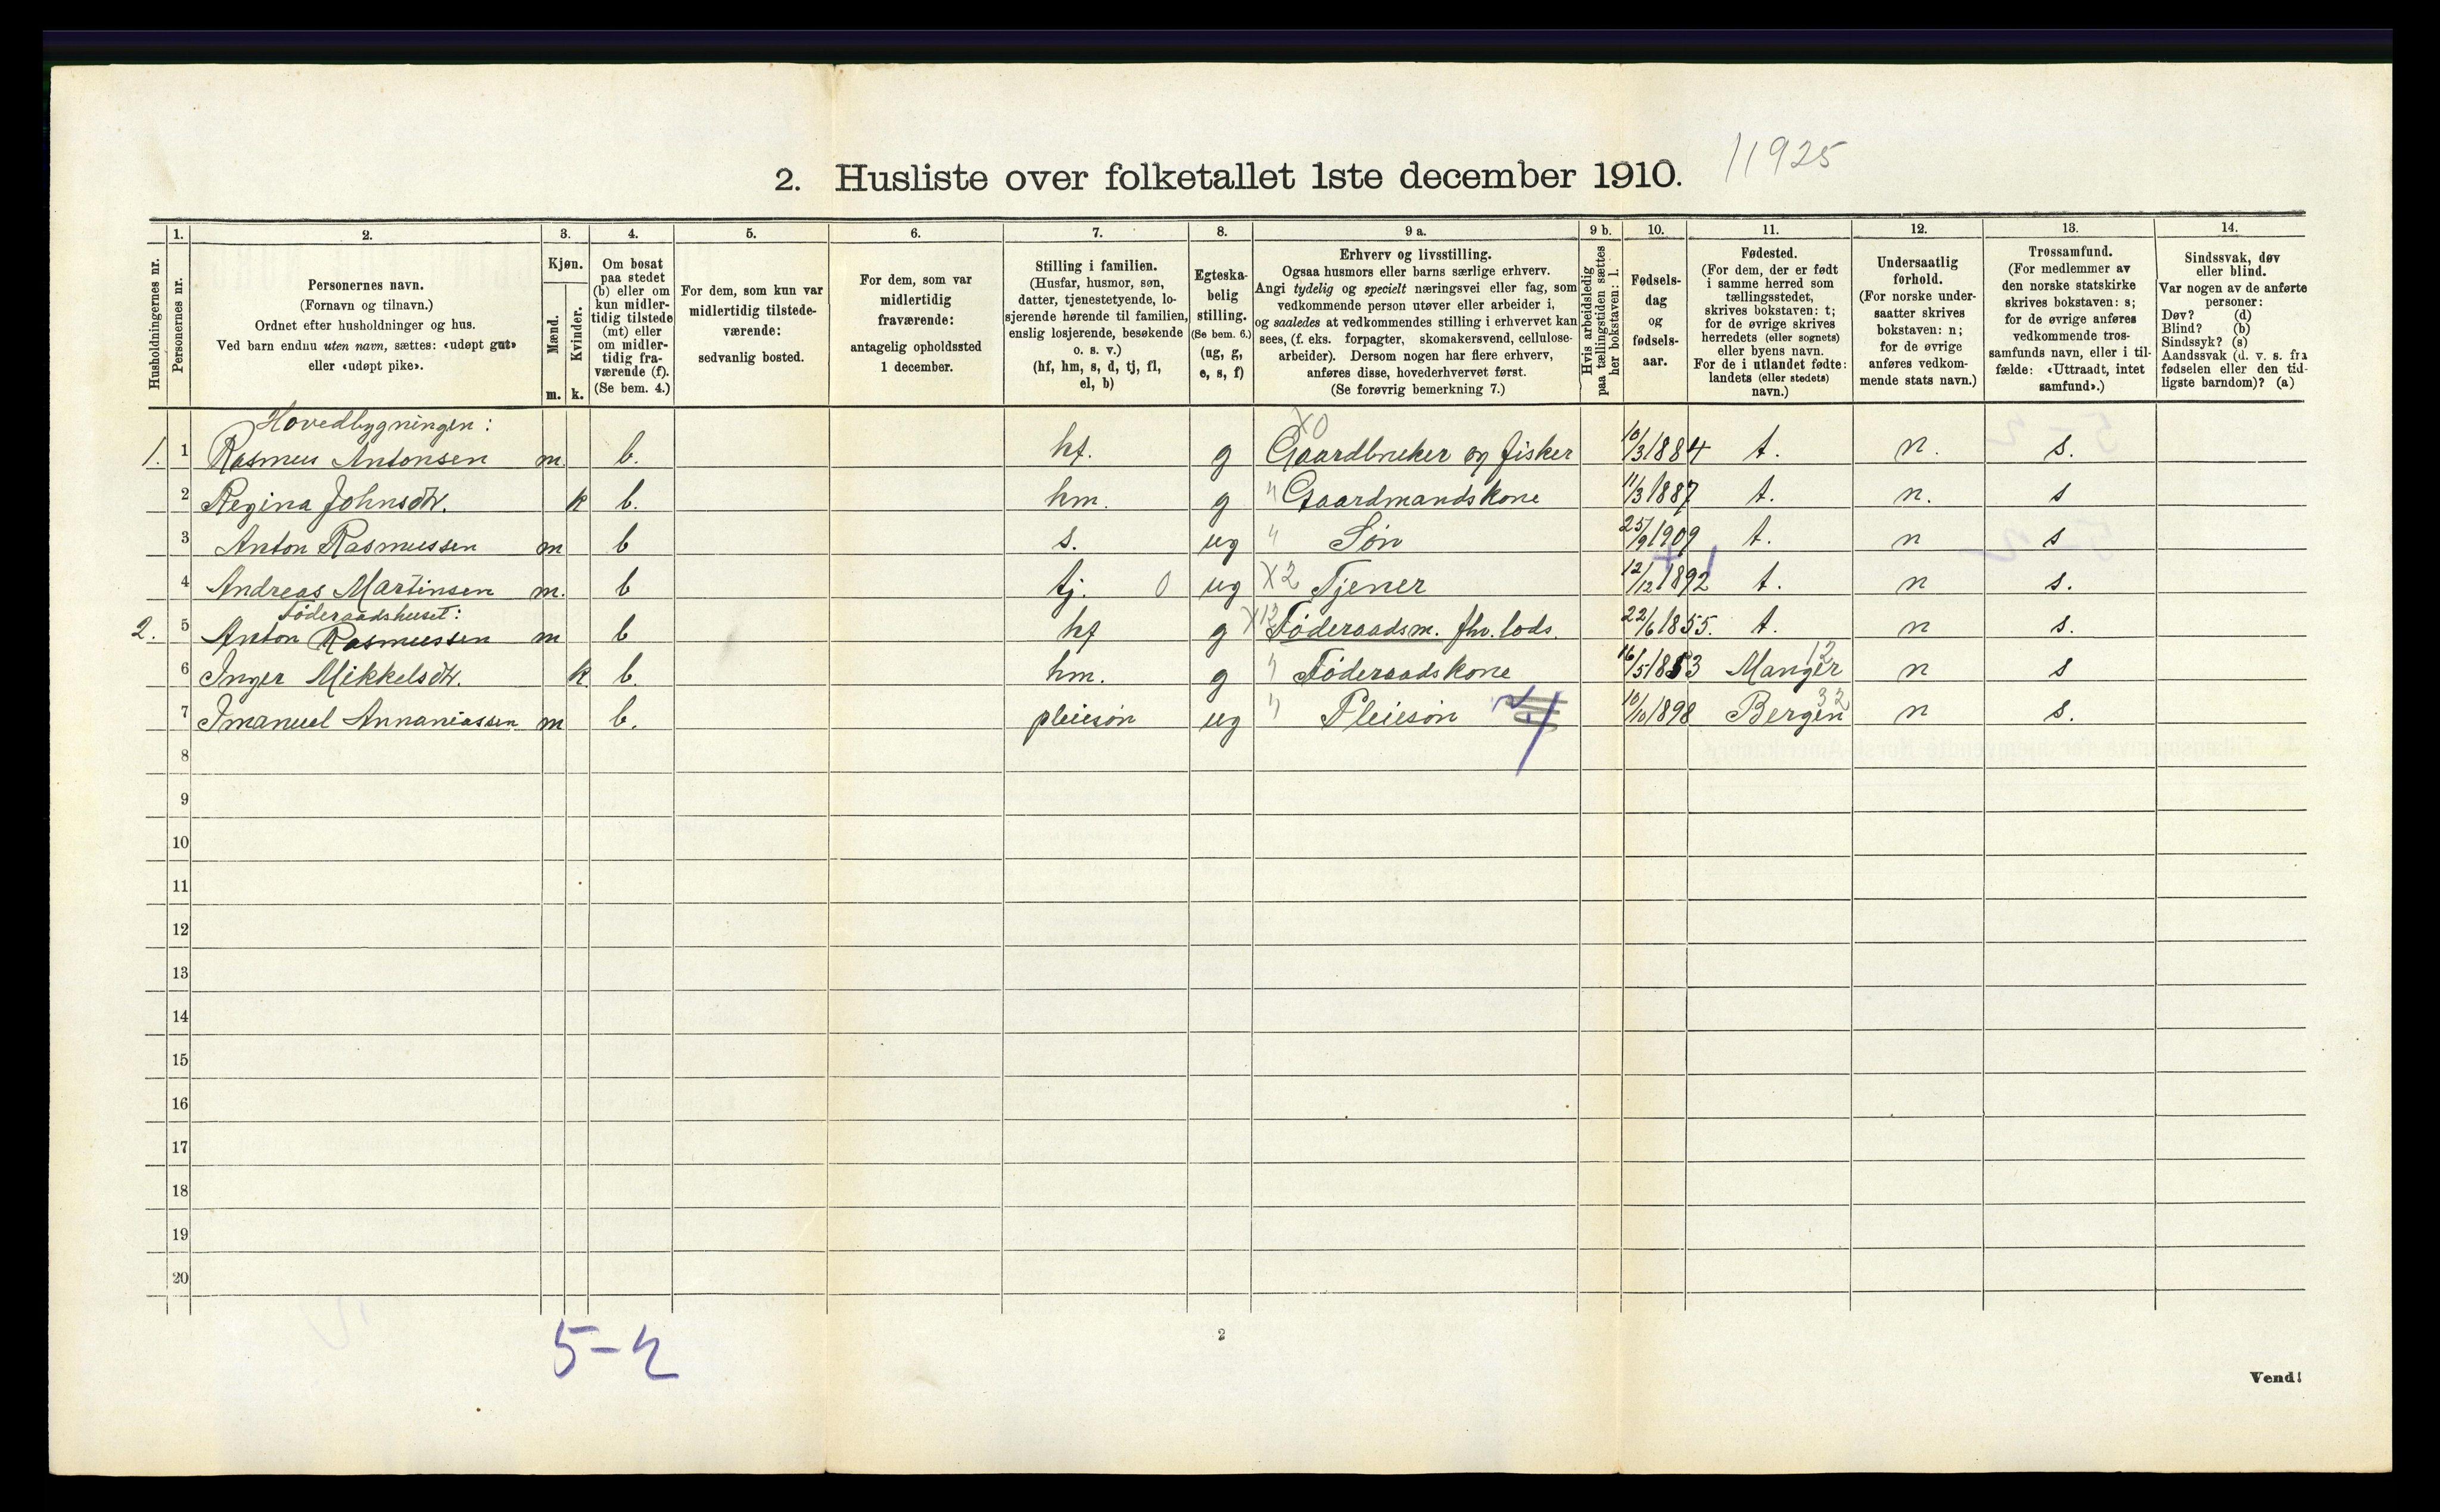 11925
2. Husliste over folketallet 1ste december 1910.
Husholdningernes nr.
1. Personernes nr.
2. Personernes navn. (Fornavn og tilnavn.) Ordnet efter husholdninger og hus. Ved barn endnu uten navn, sættes: «udøpt gut» eller «udøpt pike».
3. Kjøn. Mænd. m. Kvinder. k.
4. Om bosat paa stedet (b) eller om kun midlertidig tilstede (mt) eller om midlertidig fraværende (f). (Se bem. 4.)
5. For dem, som kun var midlertidig tilstedeværende: sedvanlig bosted.
6. For dem, som var midlertidig fraværende: antagelig opholdssted 1 december.
7. Stilling i familien. (Husfar, husmor, søn, datter, tjenestetyende, losjerende hørende til familien, enslig losjerende, besøkende o. s. v.) (hf, hm, s, d, tj, fl, el, b)
8. Egteskabelig stilling. (Se bem. 6.) (ug, g, e, s, f)
9 a. Erhverv og livsstilling. Ogsaa husmors eller barns særlige erhverv. Angi tydelig og specielt næringsvei eller fag, som vedkommende person utøver eller arbeider i, og saaledes at vedkommendes stilling i erhvervet kan sees, (f. eks. forpagter, skomakersvend, cellulosearbeider). Dersom nogen har flere erhverv, anføres disse, hovederhvervet først. (Se forøvrig bemerkning 7.)
9 b. Hvis arbeidsledig paa tællingstiden sættes her bokstaven: l.
10. Fødselsdag og fødselsaar.
11. Fødested. (For dem, der er født i samme herred som tællingsstedet, skrives bokstaven: t; for de øvrige skrives herredets (eller sognets) eller byens navn. For de i utlandet fødte: landets (eller stedets) navn.)
12. Undersaatlig forhold. (For norske undersaatter skrives bokstaven: n; for de øvrige anføres vedkommende stats navn.)
13. Trossamfund. (For medlemmer av den norske statskirke skrives bokstaven: s; for de øvrige anføres vedkommende trossamfunds navn, eller i tilfælde: «Uttraadt, intet samfund».)
14. Sindssvak, døv eller blind. Var nogen av de anførte personer: Døv? (d) Blind? (b) Sindssyk? (s) Aandssvak (d. v. s. fra fødselen eller den tidligste barndom)? (a)
Hovedbygningen: X0
1. 1 Rasmus Antonsen m. b. hf. g Gaardbruker og fisker 10/3 1884 t. n. s.
2 Regina Johnsdtr. k b. hm. g " Gaardmandskone 11/3 1887 t. n. s
3 Anton Rasmussen m b s. ug " Søn 25/9 1909 t. n s
4 Andreas Martinsen m. b tj. 0 ug X2 Tjener 12/12 1892 t. n s.
Føderaadshuset:
2. 5 Anton Rasmussen m b hf g X12 Føderaadsm. fhv. lods. 22/6 1855. t. n s.
6 Inger Mikkelsdtr. k b. hm. g " Føderaadskone 16/5 1853 Manger 12 n s
7 Imanuel Annaniassen m b. pleiesøn ug " Pleiesøn 10/10 1898 Bergen 32 n s.
8
9
10
11
12
13
14
15
16
17
18
19
20
5-2
2
Vend!